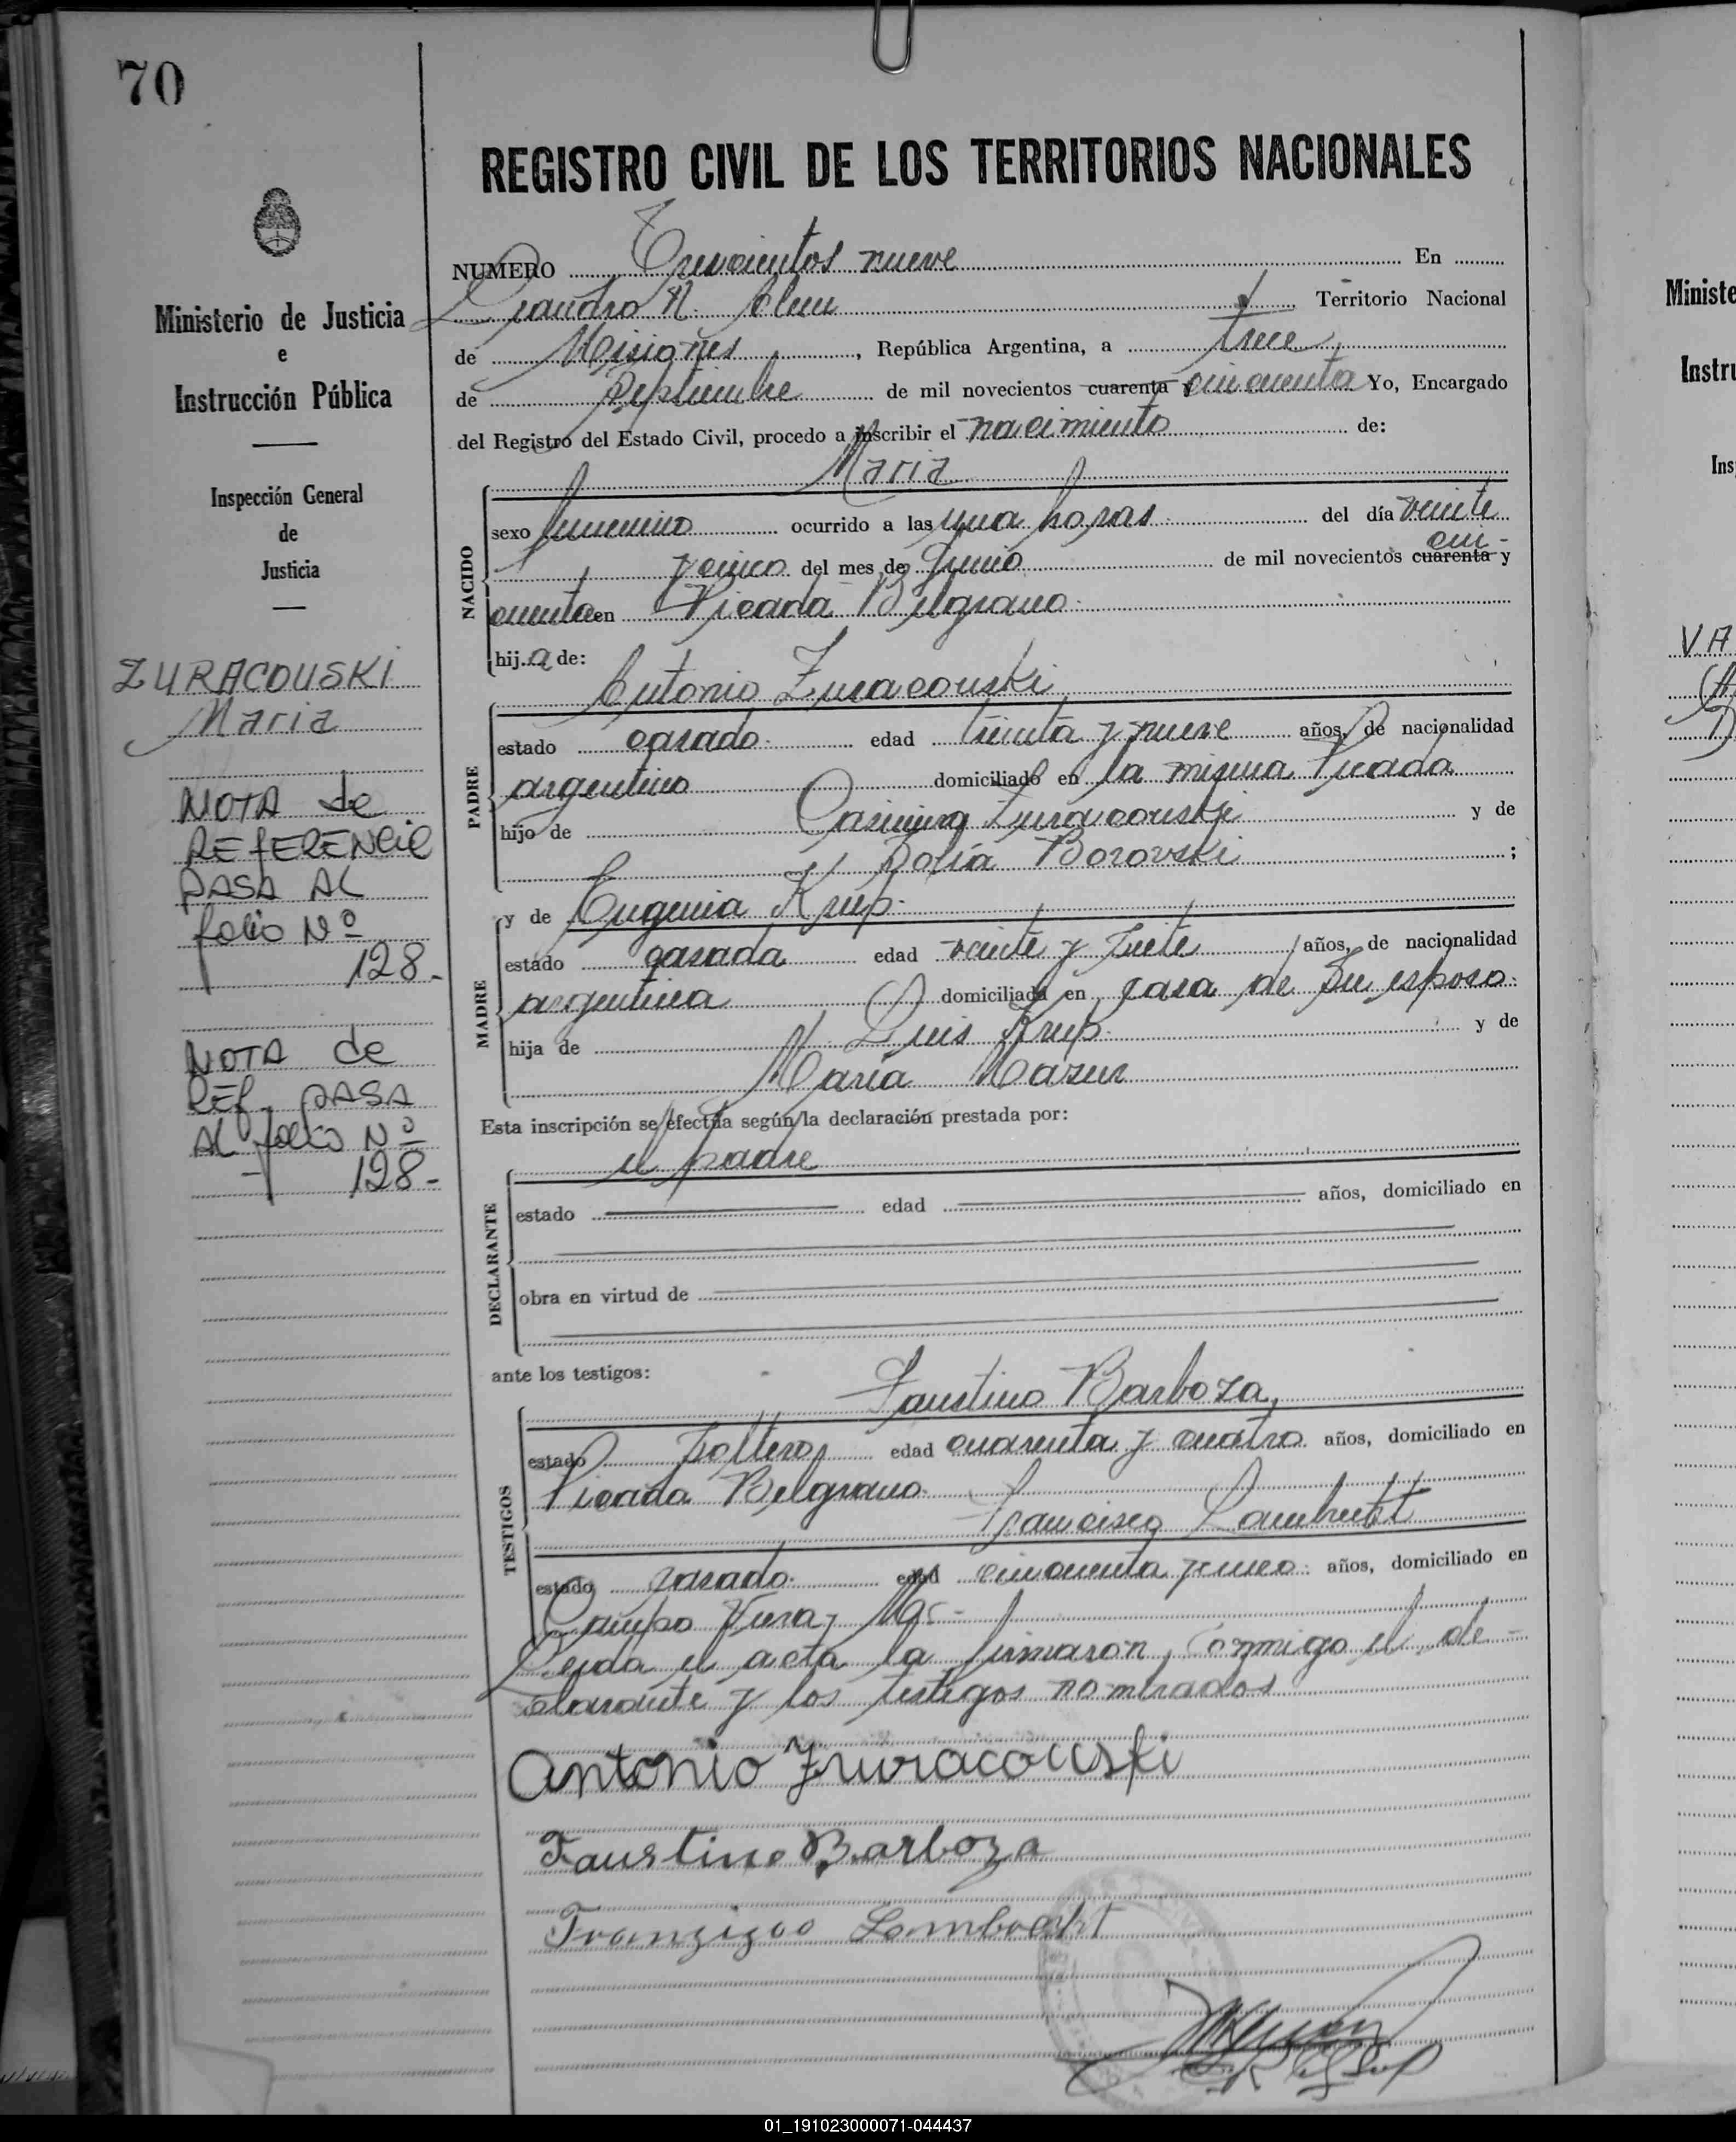 70
REGISTRO CIVIL DE LOS TERRITORIOS NACIONALES
NUMERO Trescientos nueve En
Leandro N. Alem Territorio Nacional
de Misiones, República Argentina, a trece
de Septiembre de mil novecientos cuarenta y cincuenta Yo, Encargado
del Registro del Estado Civil, procedo a inscribir el nacimiento de:
Maria
NACIDO
sexo femenino ocurrido a las una horas del día veinte
y cinco del mes de Junio de mil novecientos cuarenta y cin-
cuenta en Picada Belgrano
hija de:
Antonio Zuracouski
PADRE
estado casado edad treinta y nueve años, de nacionalidad
argentino domiciliado en la misma Picada
hijo de Casimiro Zuracouski y de
Sofía Borovski ;
y de Eugenia Krup.
MADRE
estado casada edad veinte y siete años, de nacionalidad
argentina domiciliada en casa de su esposo.
hija de Luis Krup y de
María Mazur
Esta inscripción se efectúa según la declaración prestada por:
el padre
DECLARANTE
estado edad años, domiciliado en
obra en virtud de
ante los testigos:
Faustino Barboza,
TESTIGOS
estado soltero, edad cuarenta y cuatro años, domiciliado en
Picada Belgrano.
Francisco Lambrecht
estado casado. edad cincuenta y años, domiciliado en
Campo Viera,
Leida el acta la firmaron, conmigo el de-
clarante y los testigos nombrados
Antonio Zuracouski
Faustino Barboza
Franzizco Lambrecht
Ministerio de Justicia
e
Instrucción Pública
Inspección General
de
Justicia
ZURACOUSKI
Maria
NOTA de
REFERENCIA
PASA AL
folio Nº
128.-
NOTA de
REf. PASA
AL folio Nº
128.-
Ministe
Instru
Ins
VA
01_191023000071-044437